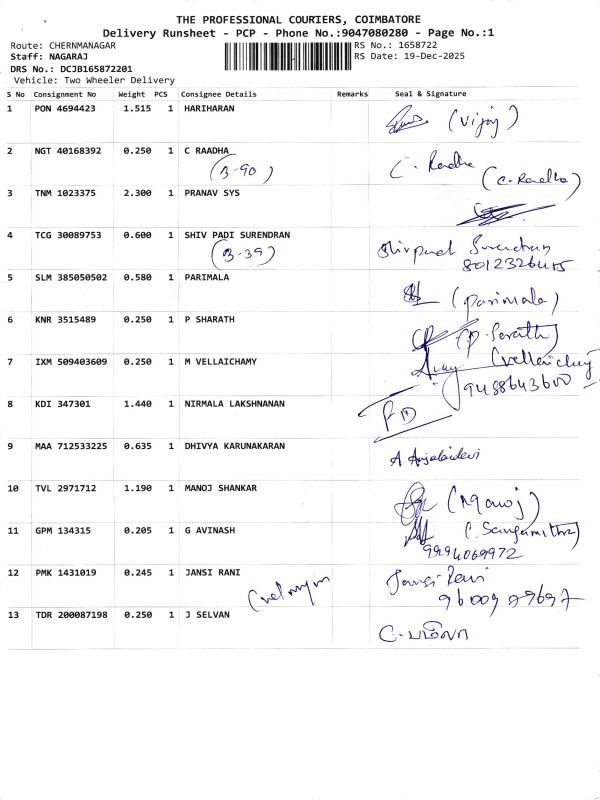 THE PROFESSIONAL COURIERS, COIMBATORE
Delivery Runsheet - PCP - Phone No.:9047080280 - Page No.:1
Route: CHERNMANAGAR RS No.: 1658722
Staff: NAGARAJ RS Date: 19-Dec-2025
DRS No.: DCJB165872201
Vehicle: Two Wheeler Delivery
S No Consignment No Weight PCS Consignee Details Remarks Seal & Signature
1 PON 4694423 1.515 1 HARIHARAN
(Vijay)
2 NGT 40168392 0.250 1 C RAADHA
(B-90) C. Raadha
(C. Raadha)
3 TNM 1023375 2.300 1 PRANAV SYS
4 TCG 30089753 0.600 1 SHIV PADI SURENDRAN
(B-39) Surendran
5 SLM 385050502 0.580 1 PARIMALA
(parimala)
6 KNR 3515489 0.250 1 P SHARATH
(P. Sarath)
7 IXM 509403609 0.250 1 M VELLAICHAMY
(Vellaichamy
9488643600
8 KDI 347301 1.440 1 NIRMALA LAKSHNANAN
9 MAA 712533225 0.635 1 DHIVYA KARUNAKARAN
A. Anjalaidevi
10 TVL 2971712 1.190 1 MANOJ SHANKAR
(Manoj)
11 GPM 134315 0.205 1 G AVINASH
(C. Sangamithra)
9994069972
12 PMK 1431019 0.245 1 JANSI RANI
Jansi Rani
13 TDR 200087198 0.250 1 J SELVAN